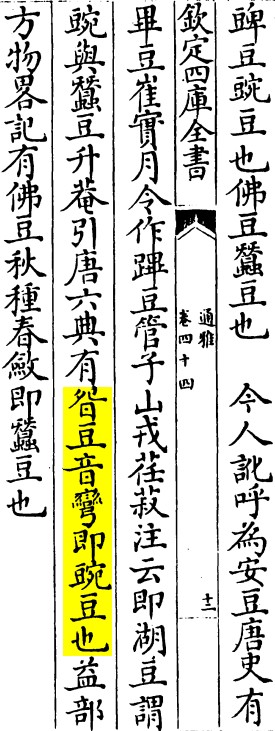 豍豆豌豆也佛豆蠶豆也　今人訛呼為安豆唐史有
欽定四庫全書
通雅
卷四十四
十二
畢豆崔實月令作䟆豆管子山戎荏菽注云即湖豆謂
豌與蠶豆升菴引唐六典有㽜豆音彎即豌豆也益部
方物畧記有佛豆秋種春斂即蠶豆也